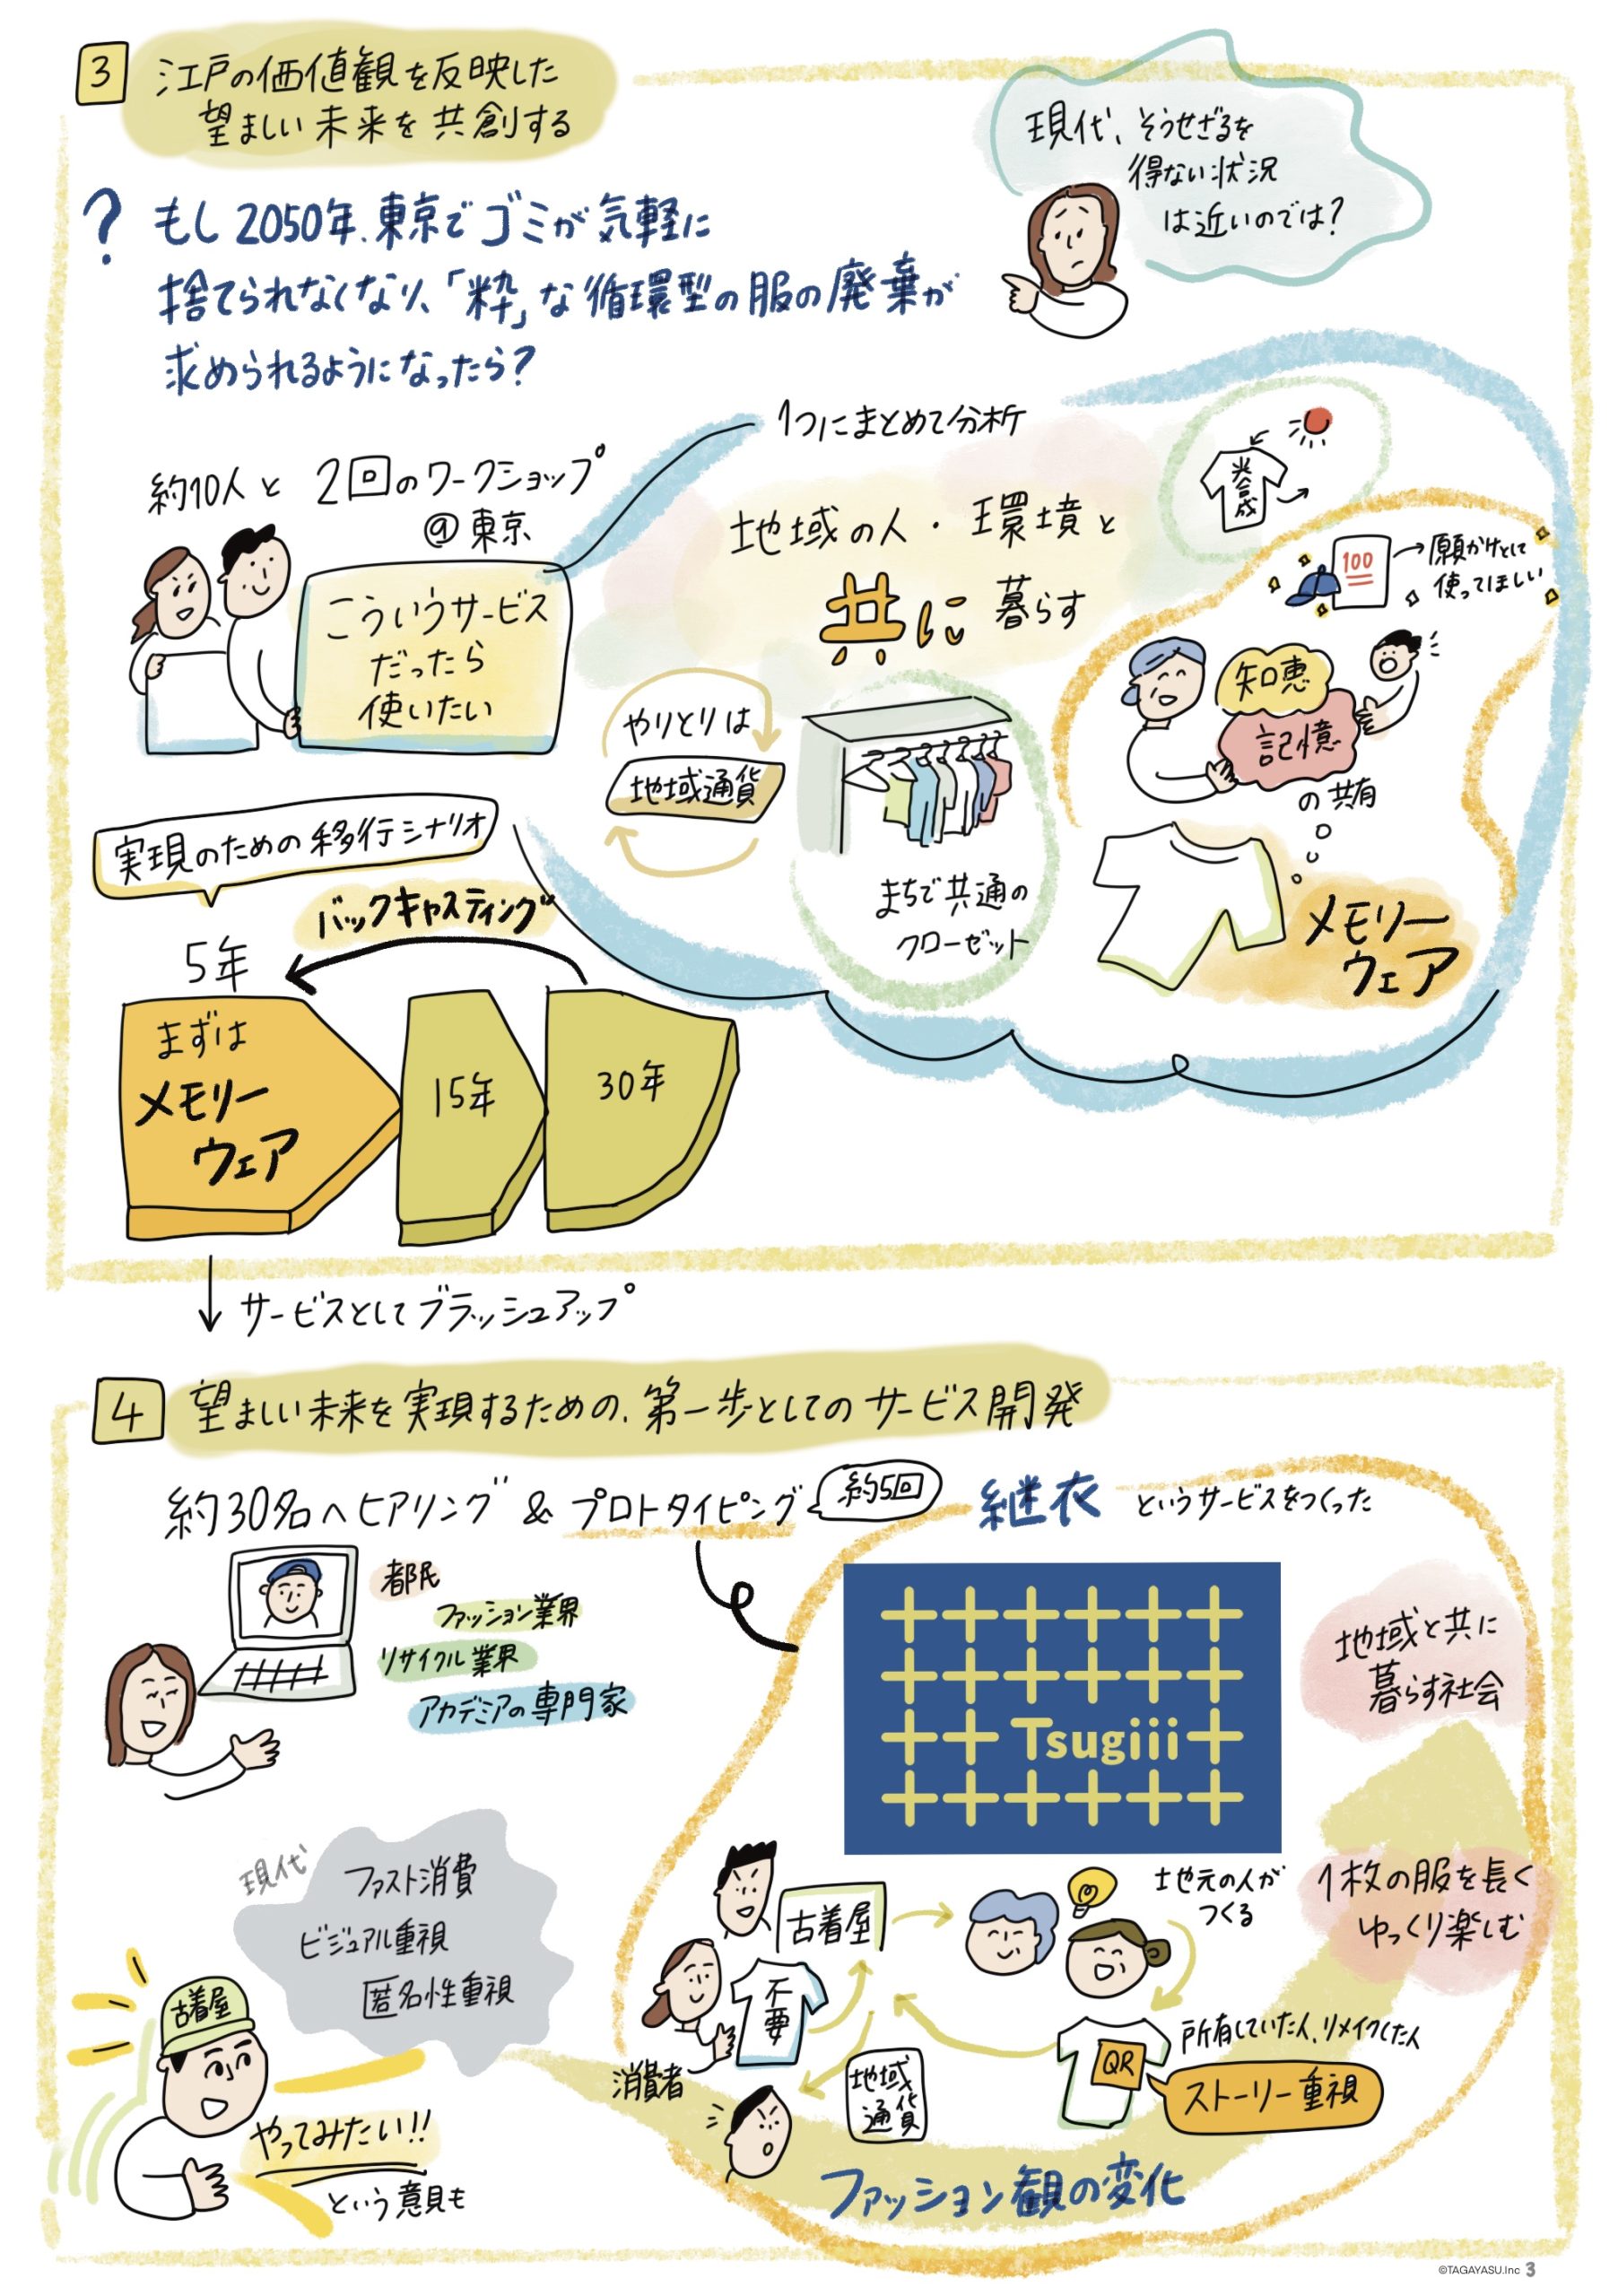 3
江戸の価値観を反映した
望ましい未来を共創する
現代、そうせざるを
得ない状況
は近いのでは?
? もし2050年、東京でゴミが気軽に
捨てられなくなり、「粋」な循環型の服の廃棄が
求められるようになったら?
約10人と 2回のワークショップ
@東京
こういうサービス
だったら
使いたい
1つにまとめて分析
地域の人・環境と
共に 暮らす
光合成
100
願かけとして
使ってほしい
知恵
記憶
の共有
メモリー
ウェア
やりとりは
地域通貨
まちで共通の
クローゼット
実現のための移行シナリオ
バックキャスティング
5年
まずは
メモリー
ウェア
15年
30年
サービスとしてブラッシュアップ
4
望ましい未来を実現するための、第一歩としてのサービス開発
約30名へヒアリング & プロトタイピング
約5回
都民
ファッション業界
リサイクル業界
アカデミアの専門家
継衣 というサービスをつくった
Tsugiii
地域と共に
暮らす社会
1枚の服を長く
ゆっくり楽しむ
現代
ファスト消費
ビジュアル重視
匿名性重視
古着屋
やってみたい!!
という意見も
古着屋
不要
消費者
地域
通貨
地元の人が
つくる
QR
所有していた人、リメイクした人
ストーリー重視
ファッション観の変化
©TAGAYASU.Inc 3